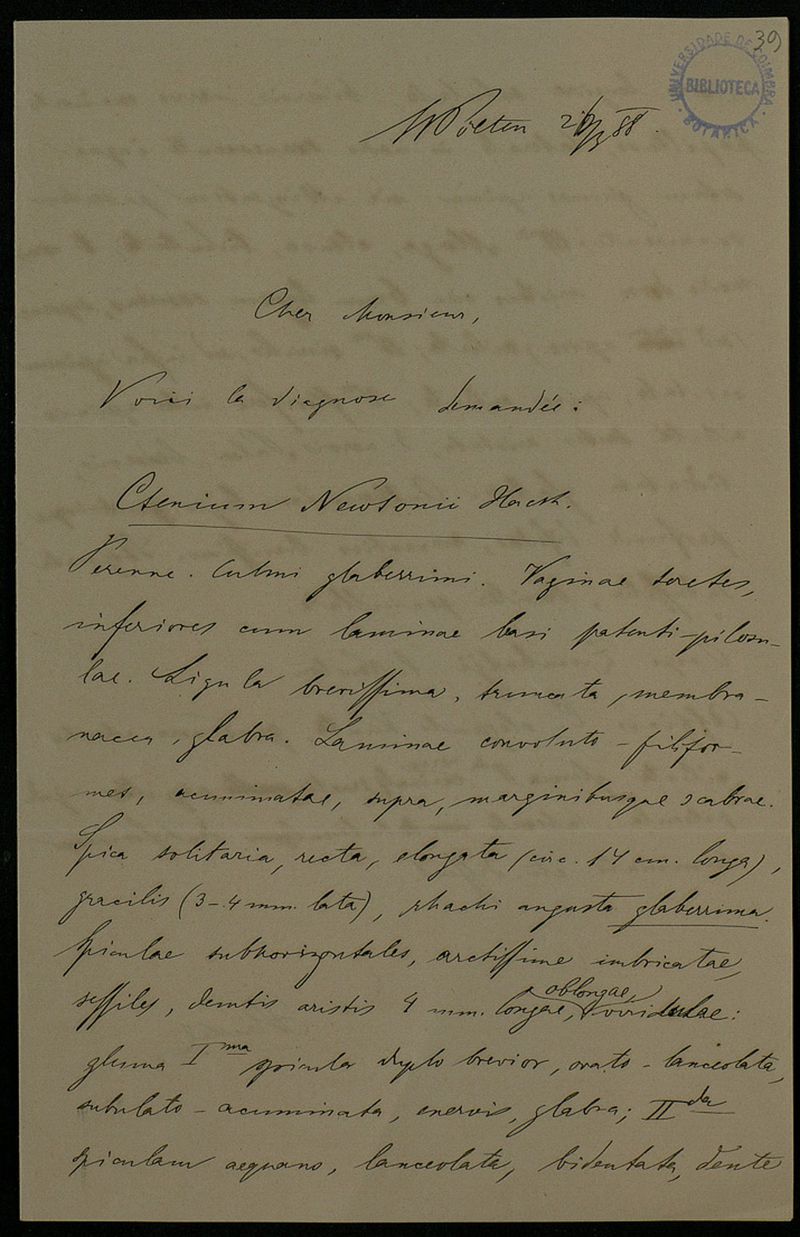 39
UNIVERSIDADE DE COIMBRA
BIBLIOTECA
BOTANICA
St Pölten 88
Cher Monsieur,
Voici la diagnose demandée:
Ctenium Newtonii Hack.
Perenne. Culmi glaberrimi. Vaginae teretes,
inferiores cum laminae basi patenti-pilosu-
lae. Ligula brevissima, truncata, membra-
nacea, glabra. Laminae convoluto-filifor-
mes, acuminatae, supra, marginibusque scabrae.
Spica solitaria, recta, elongata (circ. 14 cm. longa),
gracilis (3-4 mm. lata), rhachi angusta glaberrima.
Spiculae subhorizontales, arctissime imbricatae,
sessiles, demtis aristis 4 mm. longae, oblongae, viridulae:
gluma Ima spicula duplo brevior, ovato-lanceolata,
subulato-acuminata, enervis, glabra; IIda
spiculam aequans, lanceolata, bidentata, dente